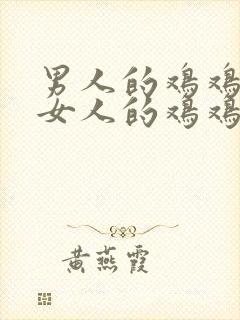 男人的鸡鸡
女人的鸡鸡
黄燕霞